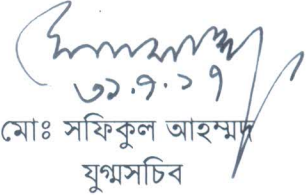 ৩১.৭.১৭
মোঃ সফিকুল আহম্মদ
যুগ্মসচিব